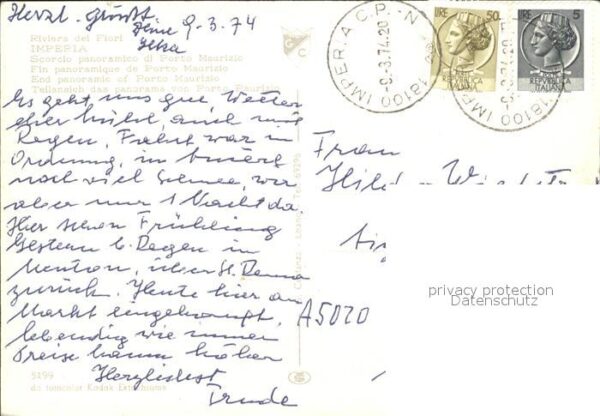 Herzl. Grüße
Deine 9-3.74
Riviera dei Fiori
IMPERIA
Scorcio panoramico di Porto Maurizio
Fin panoramique de Porto Maurizio
End panoramic of Porto Maurizio
Teilansich das panorama von Porto Maurizio
Es geht uns gut, Wetter
eher kühl, auch mit
Regen, Fahrt war in
Ordnung, in
noch viel Schnee, wir
aber nur 1 Nacht da
Hier schon Frühling
Gestern b. Regen in
Menton, über St. Remo
zurück. Heute hier am
Markt eingekauft,
lebendig wie immer
Preise kaum höher
Herzlichst
Trude
5199
da fotocolor Kodak Ektachrome
LIRE 50
REPUBBLICA
ITALIANA
LIRE 5
REPUBBLICA
ITALIANA
18100 IMPERIA C.P.-N
-9.3.74.20
Frau
A5020
privacy protection
Datenschutz